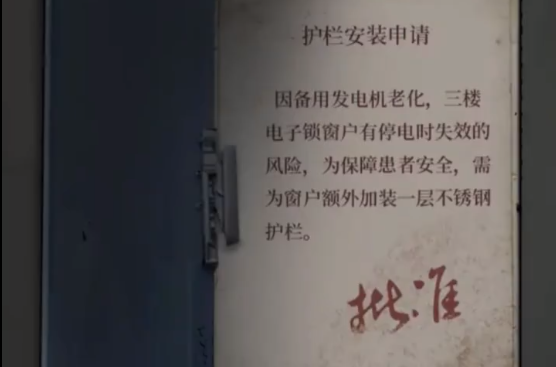 护栏安装申请
因备用发电机老化，三楼
电子锁窗户有停电时失效的
风险，为保障患者安全，需
为窗户额外加装一层不锈钢
护栏。
批准